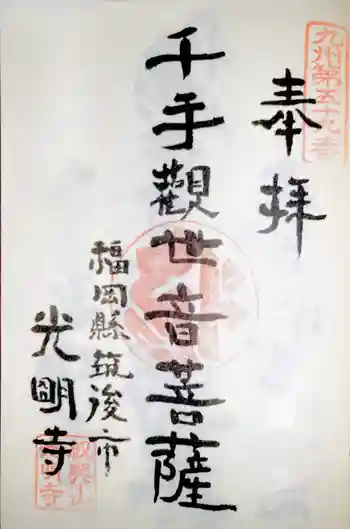 九州第五十九番
奉拝
千手觀世音菩薩
福岡縣筑後市
光明寺